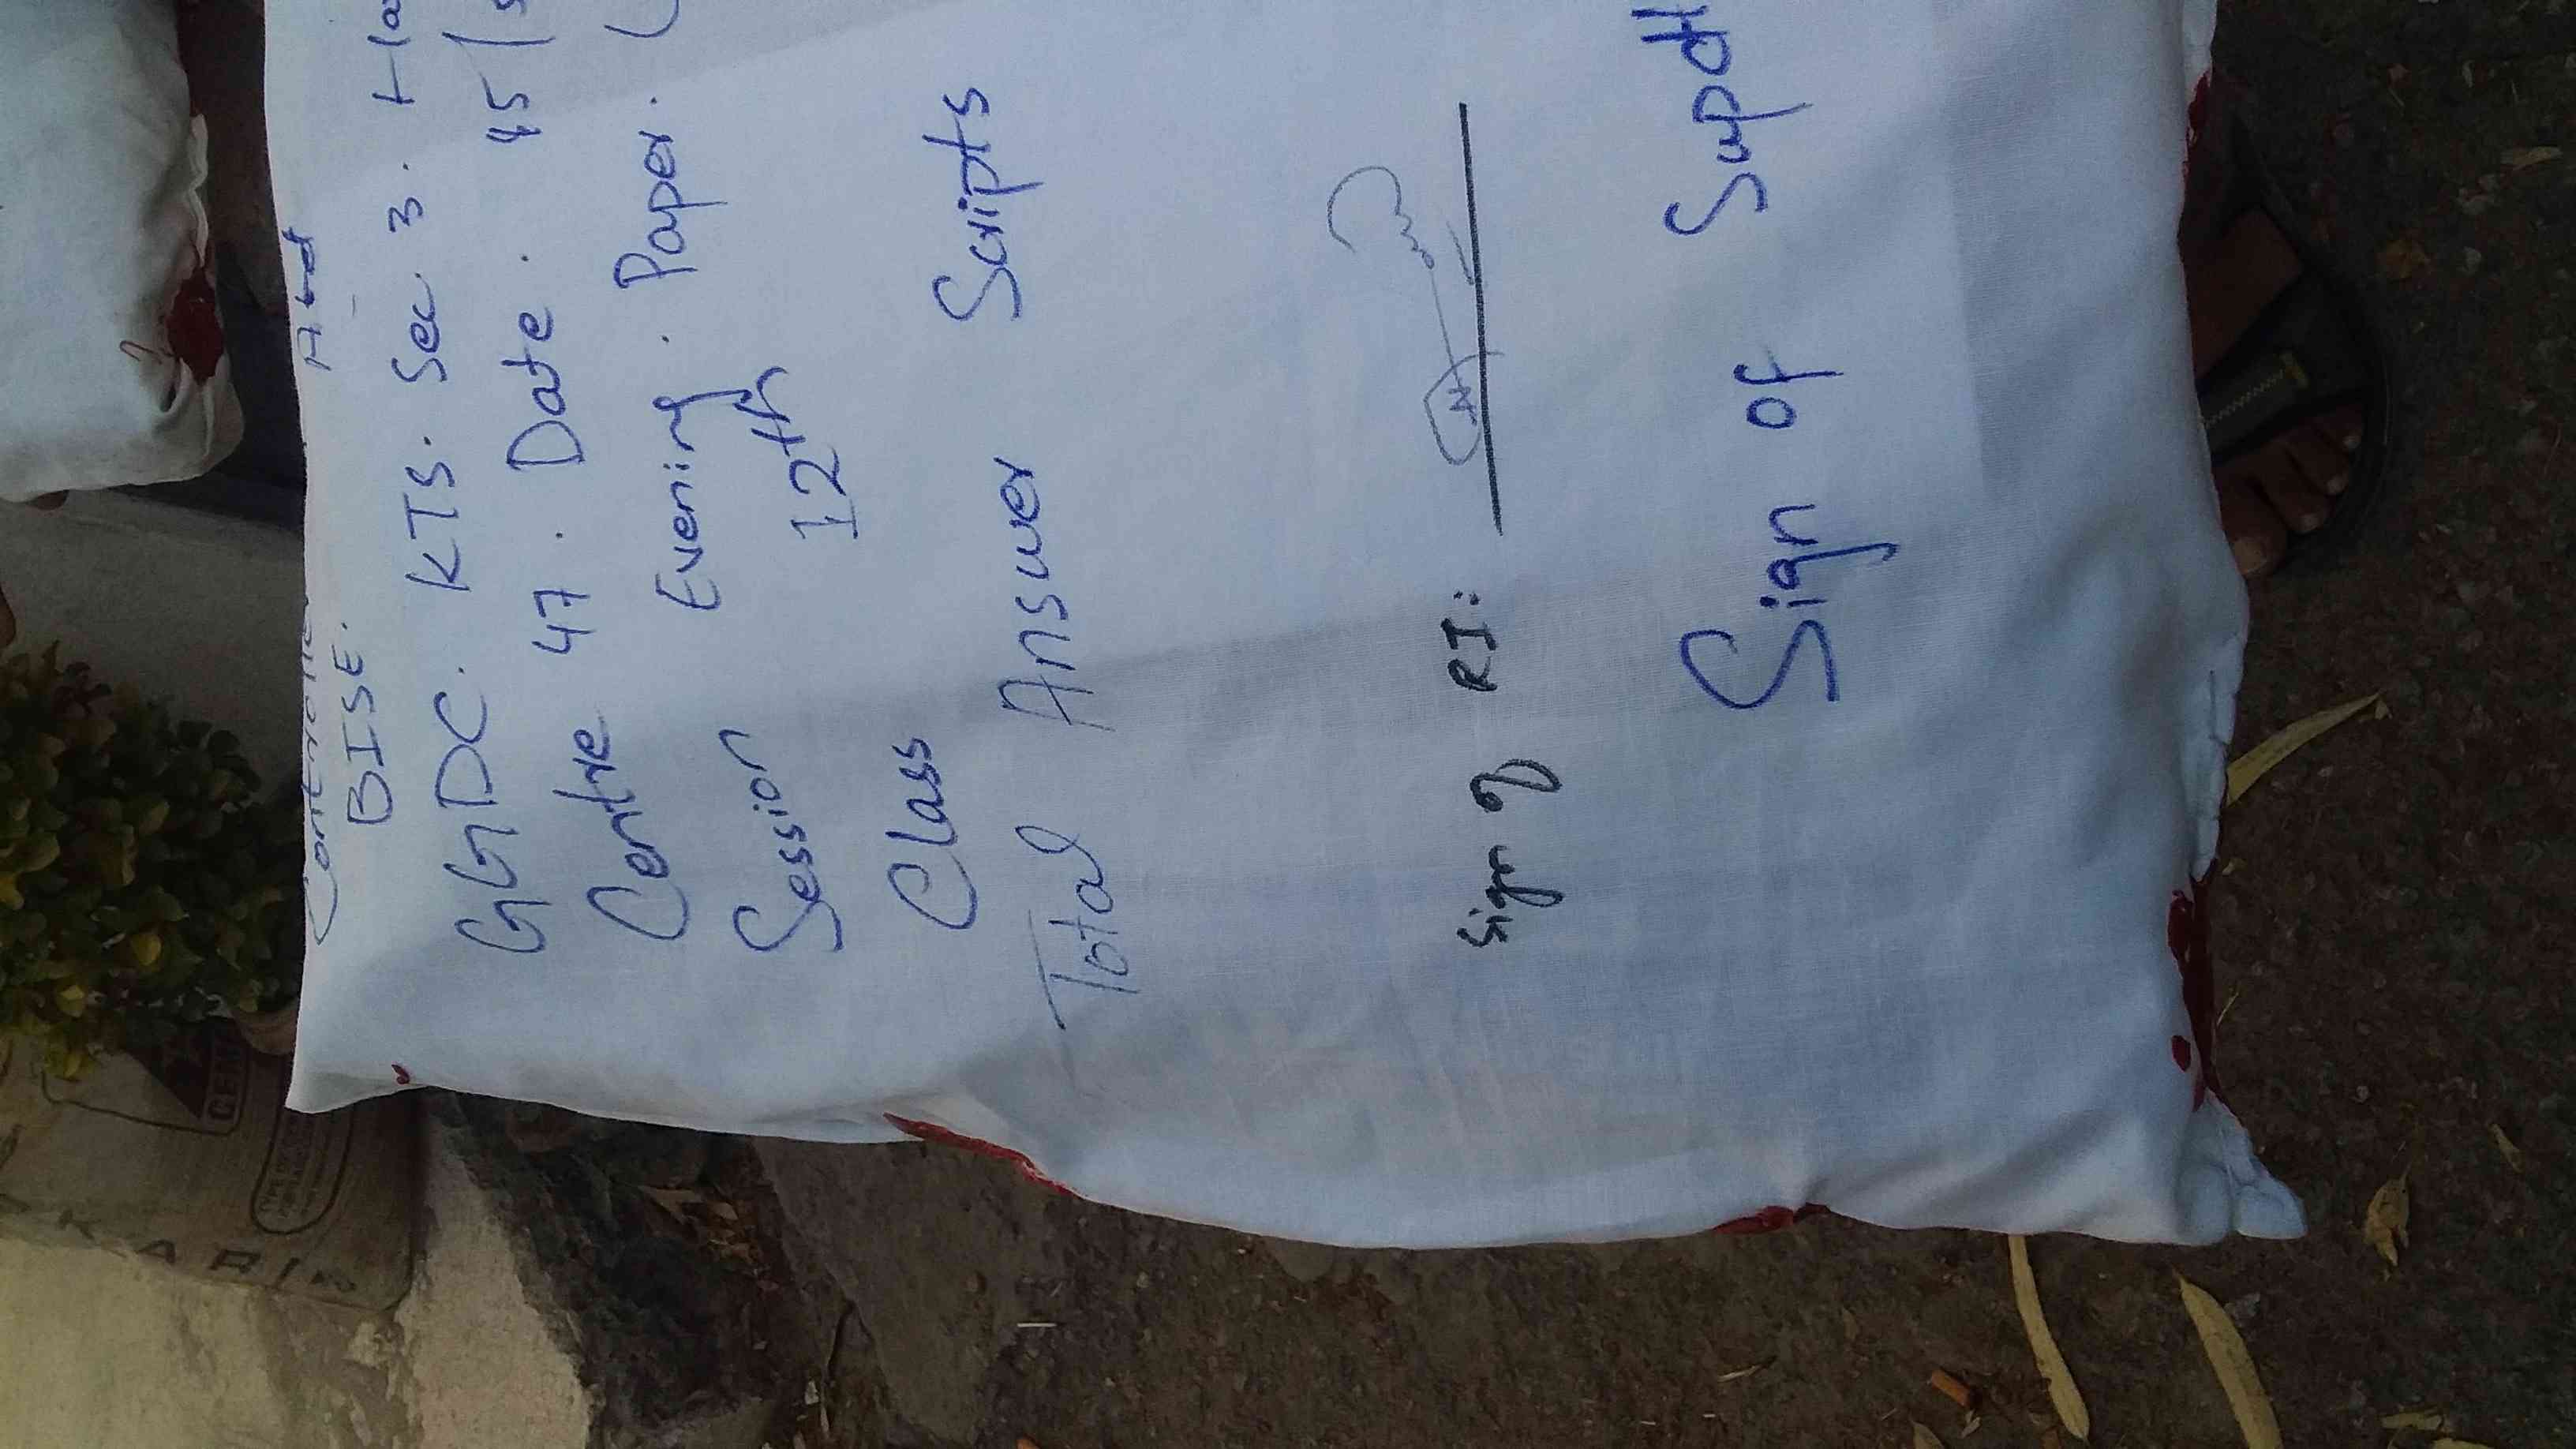 BISE.
GGDC. KTS. Sec. 3.
Centre 47. Date.
Session Evening. Paper.
Class 12th
Total Answer Scripts
Sign of RI:
Sign of Supdt